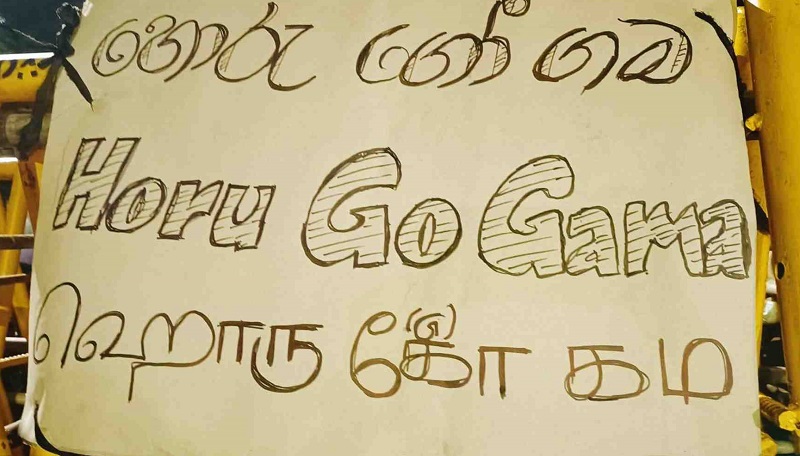 හොරු ගෝ ගම
Horu Go Gama
(G)
ஹொரு கோ கம